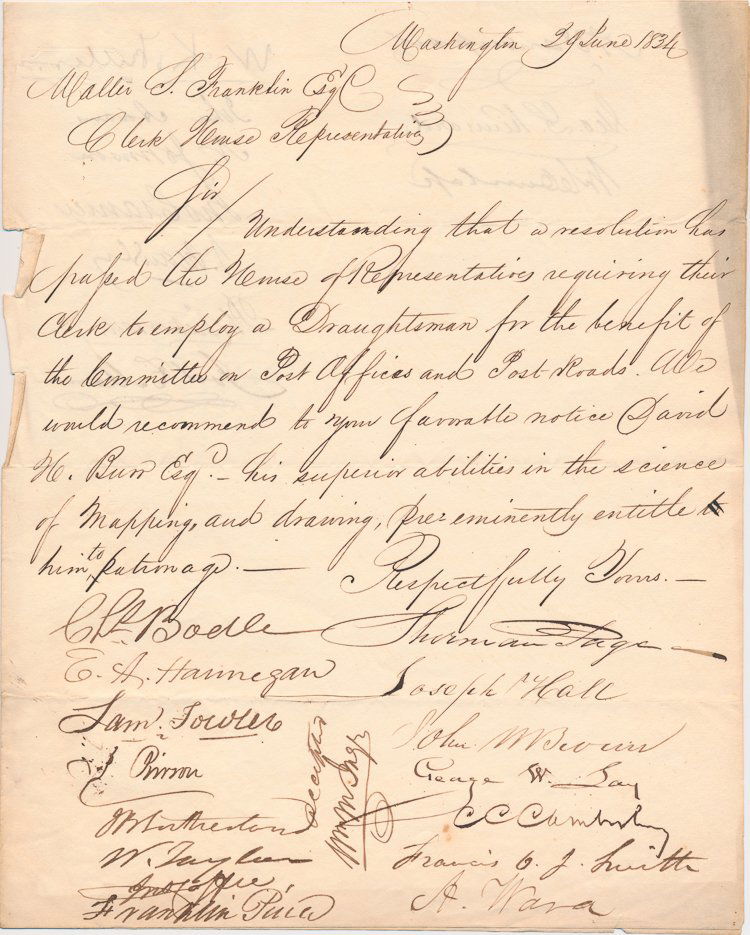 Washington 29 June 1834
Walter S. Franklin Esqr
Clerk House Representatives
Sir/
Understanding that a resolution has
passed the House of Representatives requiring their
Clerk to employ a Draughtsman for the benefit of
the Committee on Post Offices and Post Roads. We
would recommend to your favorable notice David
H. Burr Esqr. – his superior abilities in the science
of Mapping, and drawing, pre-eminently entitle
him to patronage. —
Respectfully Yours. —
Chs. Bodle
Sherman Page
E. A. Hannegan
Joseph Hall
Saml. Fowler
John W Brown
Pierson
George W. Lay
W. Taylor
C C Cambreleng
Francis O. J. Smith
Franklin Pierce
A. Ward
Wm. M. Inge